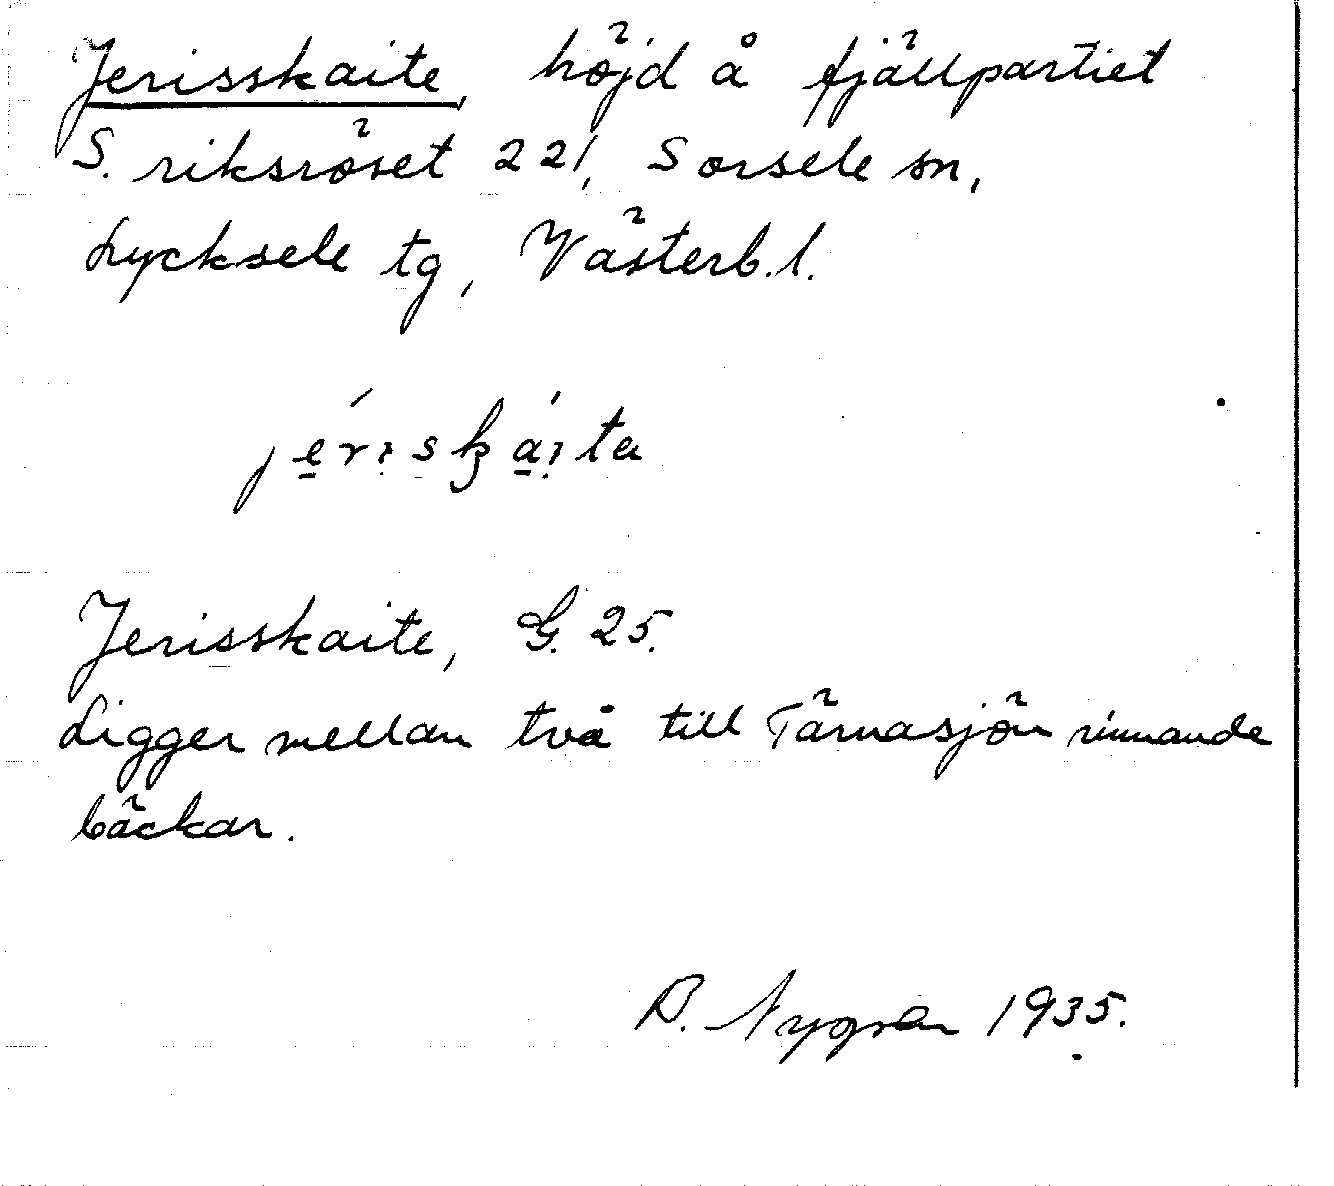 Jerisskaite, höjd å fjällpartiet
S. riksröset 221, Sorsele sn,
Lycksele tg, Västerb. l.
Jerisskaite, G. 25.
Ligger mellan två till Tärnasjön rinnande
bäckar.
Nygren 1935.